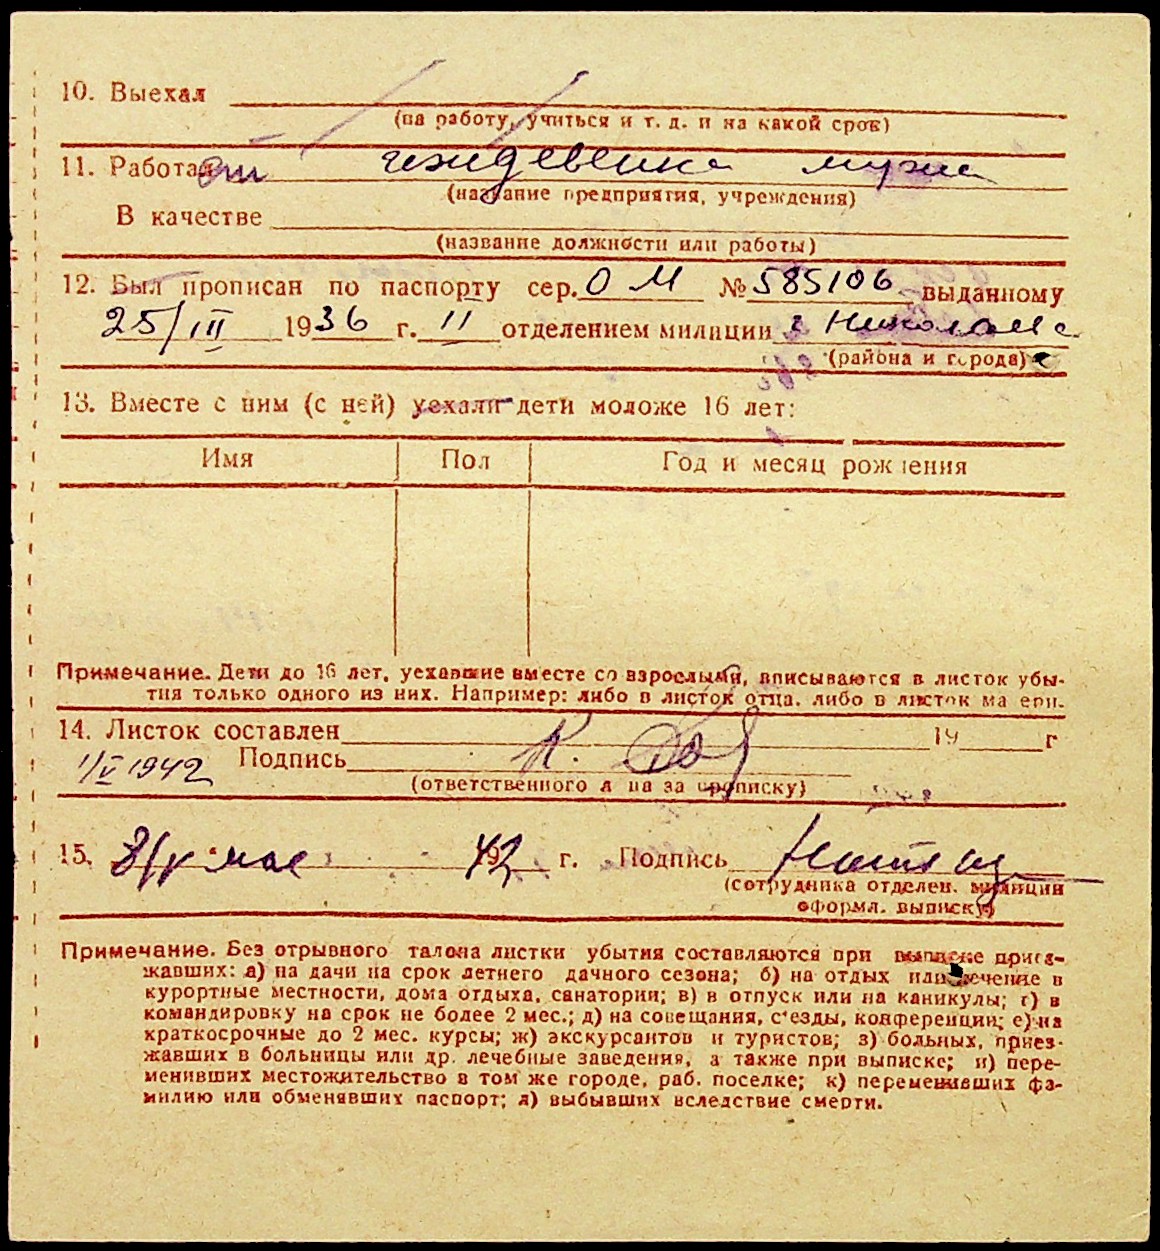 10. Выехал
(на работу, учиться и т. д. и на какой срок)
11. Работал иждевенка мужа
(название предприятия, учреждения)
В качестве
(название должности или работы)
12. Был прописан по паспорту сер. ОМ № 585106 выданному
25/III 1936 г. II отделением милиции г Николаев
(района и города)
13. Вместе с ним (с ней) уехали дети моложе 16 лет:
Имя Пол Год и месяц рождения
Примечание. Дети до 16 лет, уехавшие вместе со взрослыми, вписываются в листок убы-
тия только одного из них. Например: либо в листок отца, либо в листок матери.
14. Листок составлен 19 г
1/V 1942 Подпись К.
(ответственного лица за прописку)
15. мая 1942 г. Подпись
(сотрудника отделен. милиции
оформл. выписку)
Примечание. Без отрывного талона листки убытия составляются при выписке приез-
жавших: а) на дачи на срок летнего дачного сезона; б) на отдых или лечение в
курортные местности, дома отдыха, санатории; в) в отпуск или на каникулы; г) в
командировку на срок не более 2 мес.; д) на совещания, с'езды, конференции; е) на
краткосрочные до 2 мес. курсы; ж) экскурсантов и туристов; з) больных, приез-
жавших в больницы или др. лечебные заведения, а также при выписке; и) пере-
менивших местожительство в том же городе, раб. поселке; к) переменивших фа-
милию или обменявших паспорт; л) выбывших вследствие смерти.